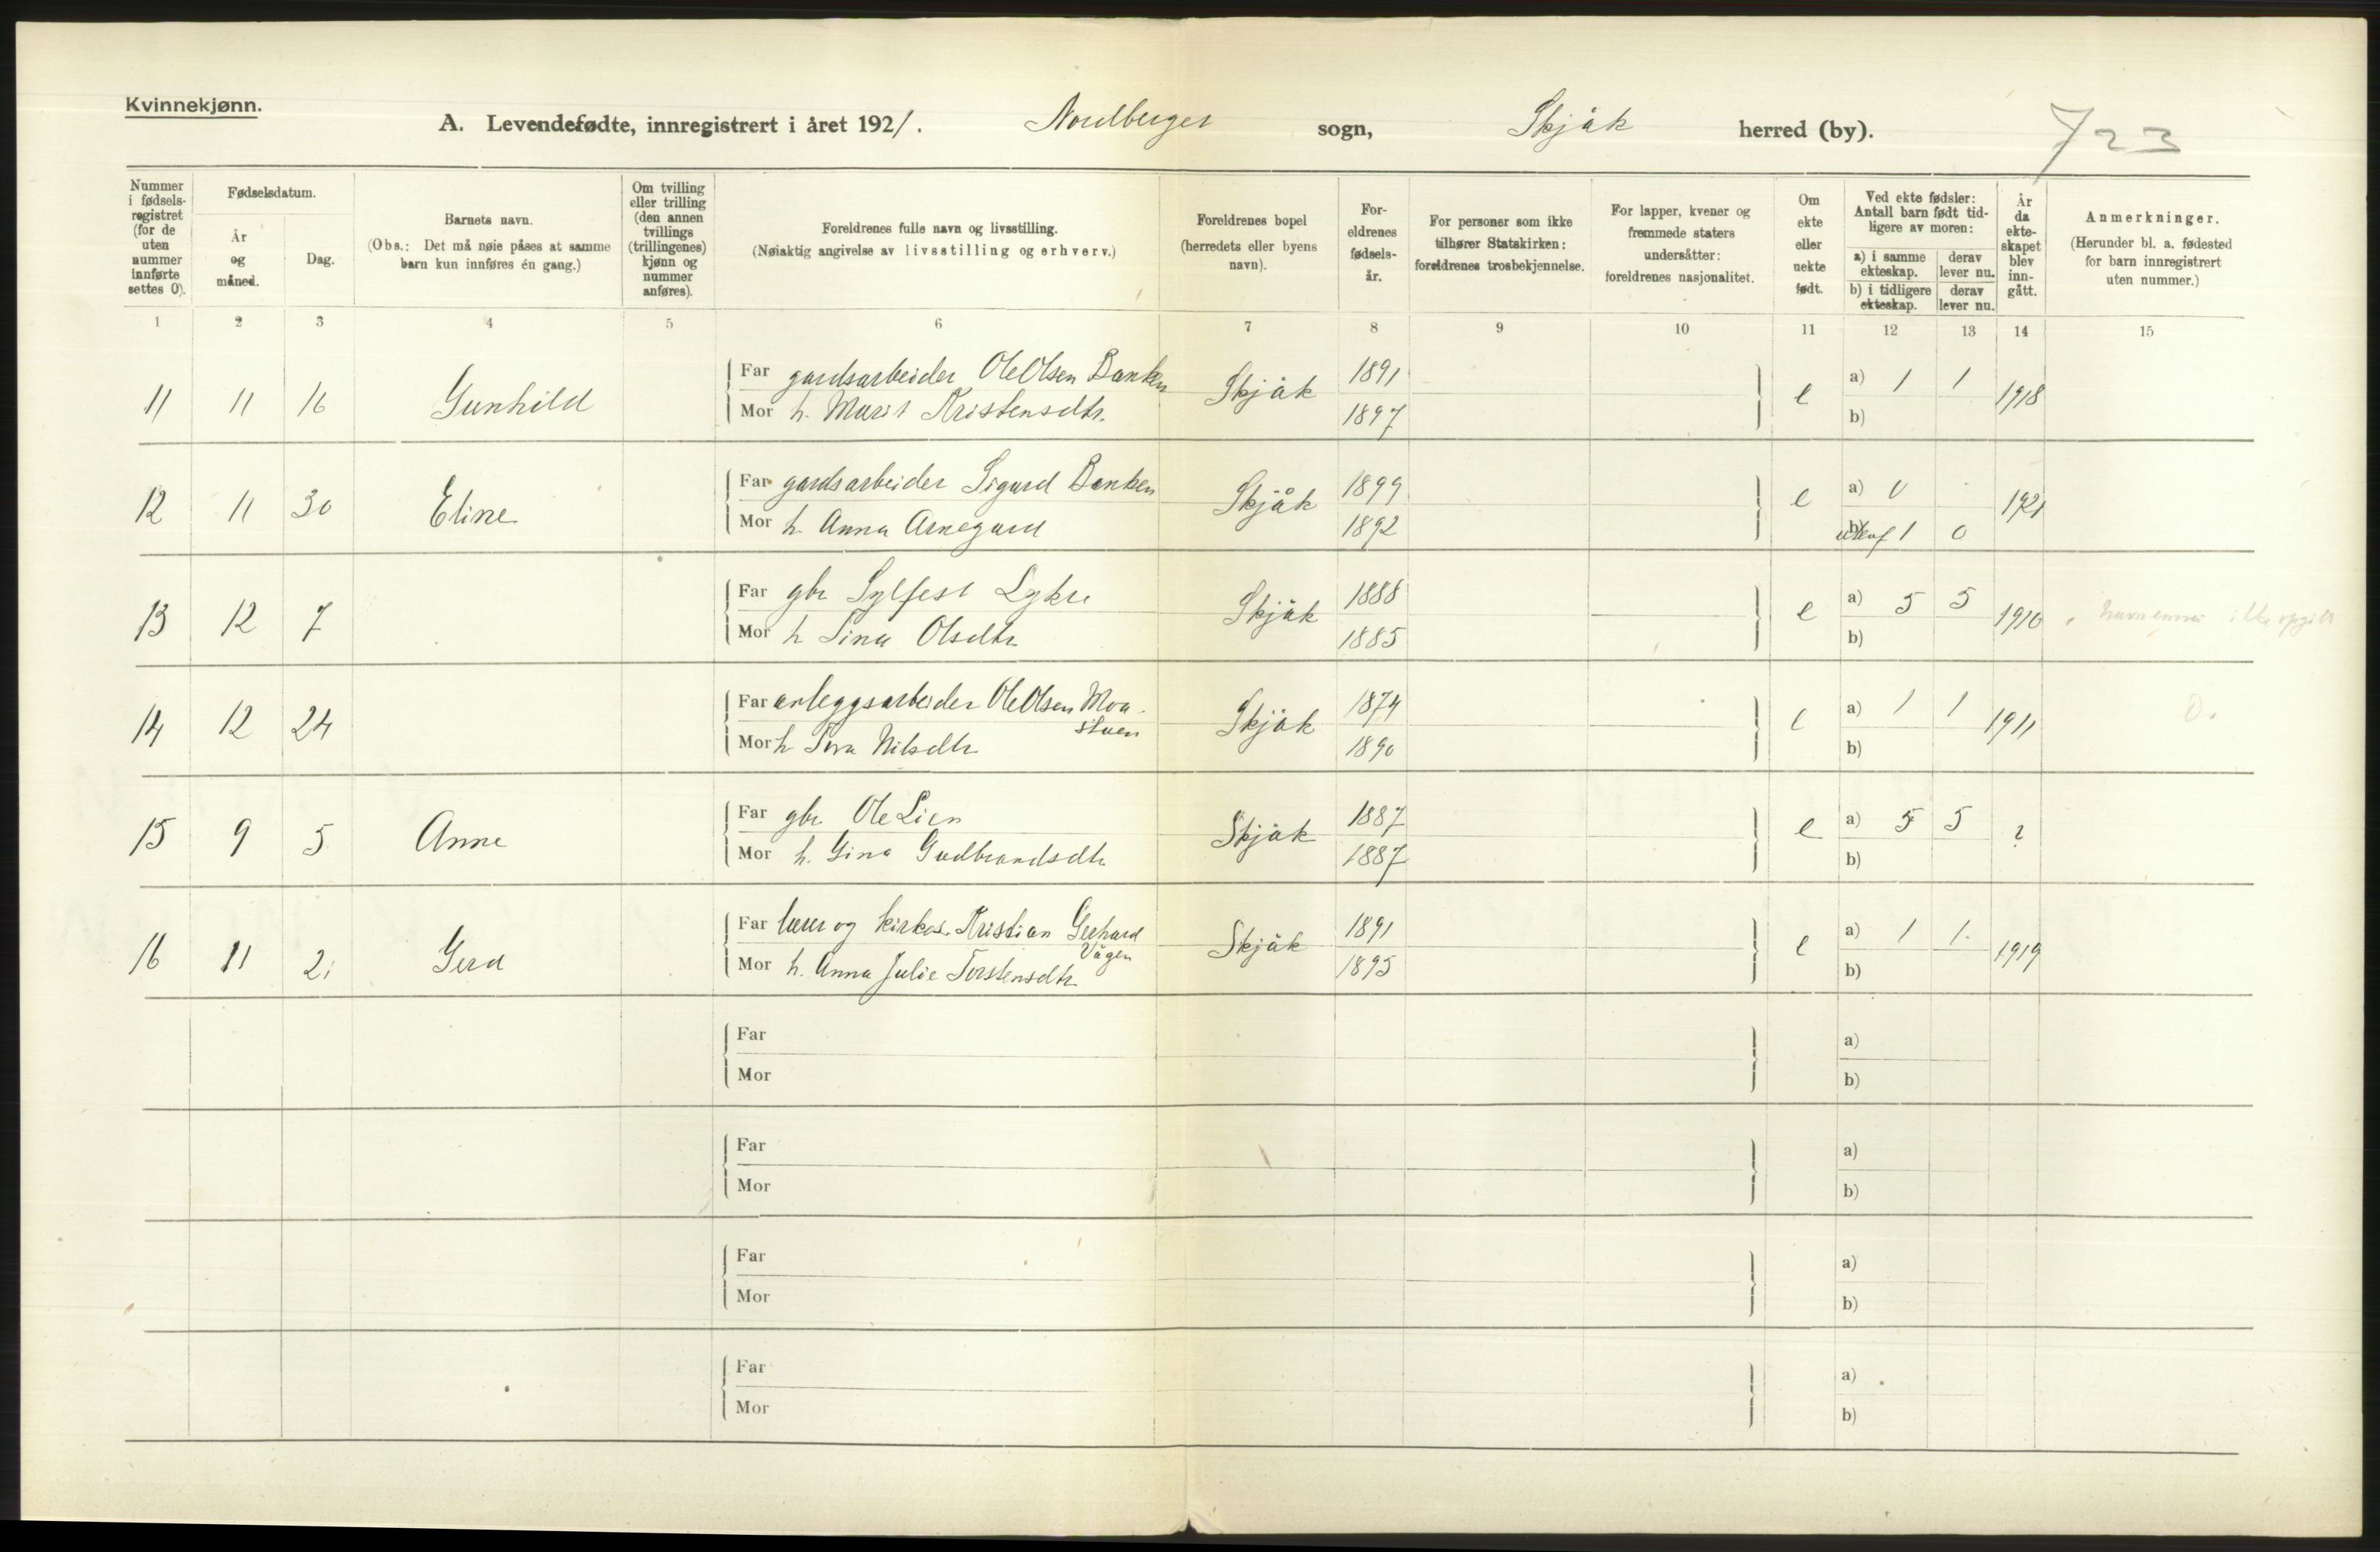 Kvinnekjønn.
A. Levendefødte, innregistrert i året 1921. Nordberget sogn, Skjåk herred (by). 723
Nummer i fødselsregistret (for de uten nummer innførte settes 0).
Fødselsdatum.
År og måned.
Dag.
Barnets navn.
(Obs.: Det må nøie påses at samme barn kun innføres én gang.)
Om tvilling eller trilling (den annen tvillings (trillingenes) kjønn og nummer anføres).
Foreldrenes fulle navn og livsstilling.
(Nøiaktig angivelse av livsstilling og erhverv.)
Foreldrenes bopel (herredets eller byens navn).
Foreldrenes fødselsår.
For personer som ikke tilhører Statskirken: foreldrenes trosbekjennelse.
For lapper, kvener og fremmede staters undersåtter: foreldrenes nasjonalitet.
Om ekte eller uekte født.
Ved ekte fødsler: Antall barn født tidligere av moren:
a) i samme ekteskap. derav lever nu.
b) i tidligere ekteskap. derav lever nu.
År da ekteskapet blev inngått.
Anmerkninger.
(Herunder bl. a. fødested for barn innregistrert uten nummer.)
1 2 3 4 5 6 7 8 9 10 11 12 13 14 15
11 11 16 Gunhild Far gardsarbeider Ole Olsen Banken Skjåk 1891 e a) 1 1 1918
Mor h. Marit Kristensdtr. 1897 b)
12 11 30 Eline Far gardsarbeider Sigurd Banken Skjåk 1899 e a) 0 1921
Mor h. Anna Arnegard 1892 b) 1 0
13 12 7 Far gbr Sylfest Lykre Skjåk 1888 e a) 5 5 1910 ikke opgitt
Mor h Sina Olsdtr 1885 b)
14 12 24 Far anleggsarbeider Ole Olsen Moa- Skjåk 1874 e a) 1 1 1911 Do
stuen
Mor h Tora Nilsdtr 1890 b)
15 9 5 Anne Far gbr. Ole Lien Skjåk 1887 e a) 5 5 ?
Mor h. Gina Gudbrandsdtr 1887 b)
16 11 21 Gerd Far lærer og kirkes. Kristian Gerhard Skjåk 1891 e a) 1 1. 1919
Vågen
Mor h. Anna Julie Torstensdtr 1895 b)
Far a)
Mor b)
Far a)
Mor b)
Far a)
Mor b)
Far a)
Mor b)